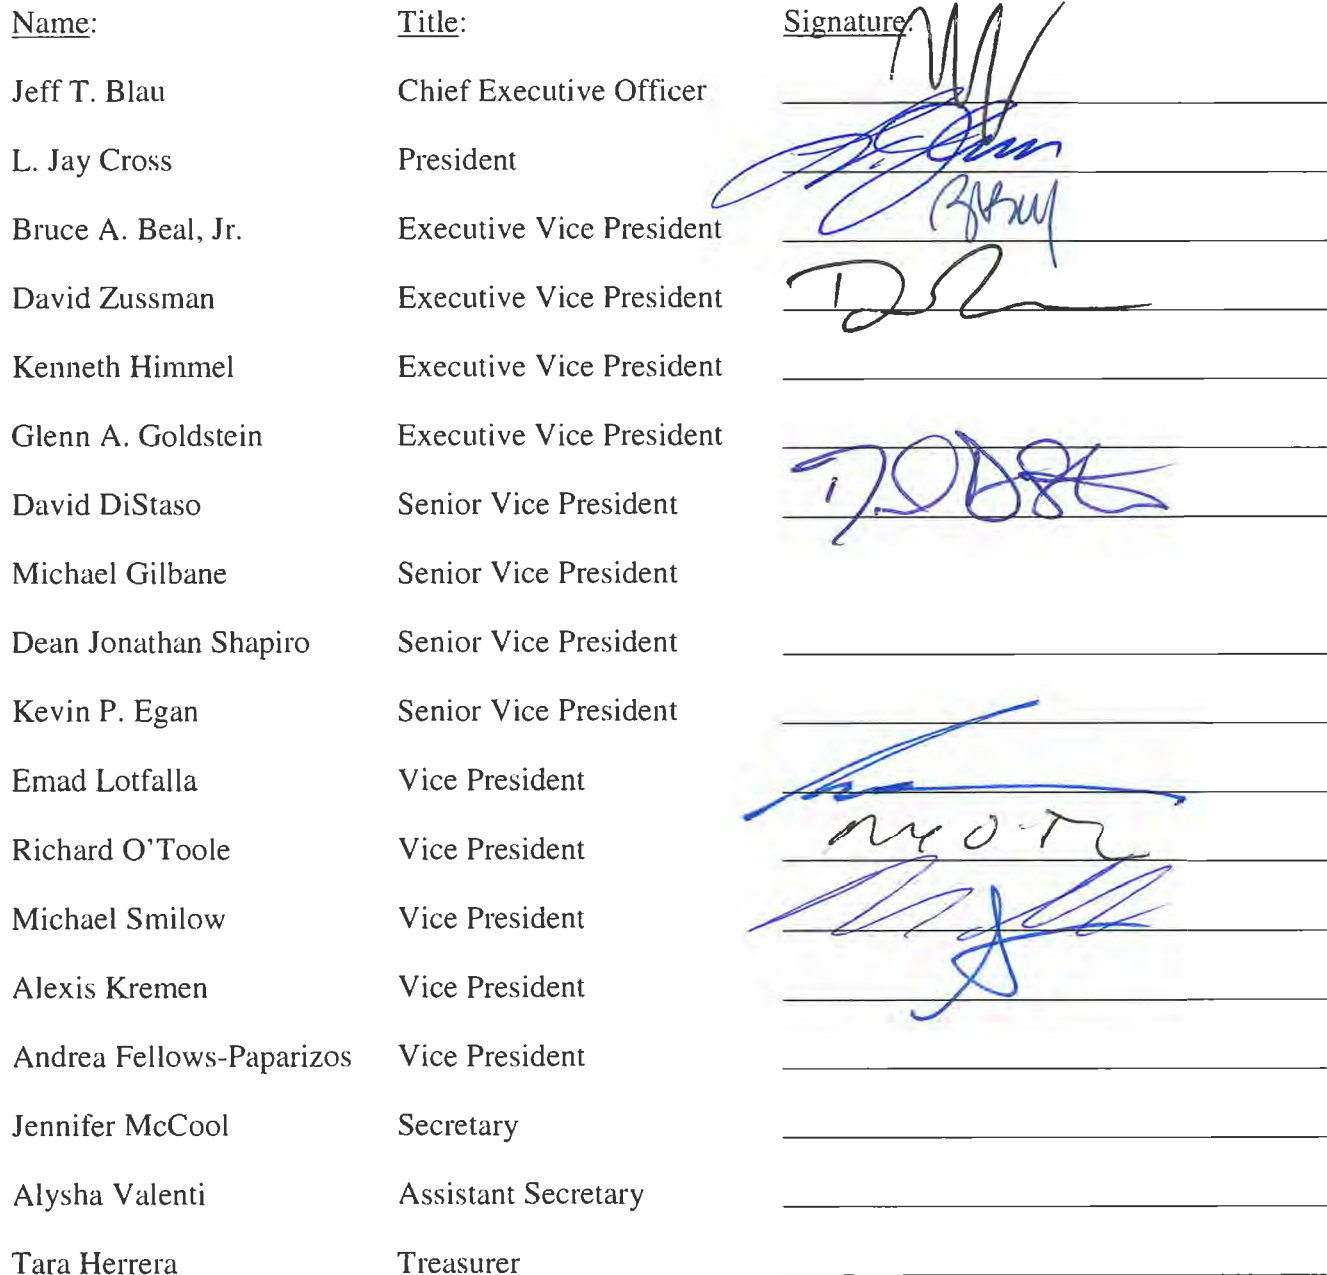 Name: Title: Signature:
Jeff T. Blau Chief Executive Officer
L. Jay Cross President
Bruce A. Beal, Jr. Executive Vice President
David Zussman Executive Vice President
Kenneth Himmel Executive Vice President
Glenn A. Goldstein Executive Vice President
David DiStaso Senior Vice President
Michael Gilbane Senior Vice President
Dean Jonathan Shapiro Senior Vice President
Kevin P. Egan Senior Vice President
Emad Lotfalla Vice President
Richard O'Toole Vice President
Michael Smilow Vice President
Alexis Kremen Vice President
Andrea Fellows-Paparizos Vice President
Jennifer McCool Secretary
Alysha Valenti Assistant Secretary
Tara Herrera Treasurer